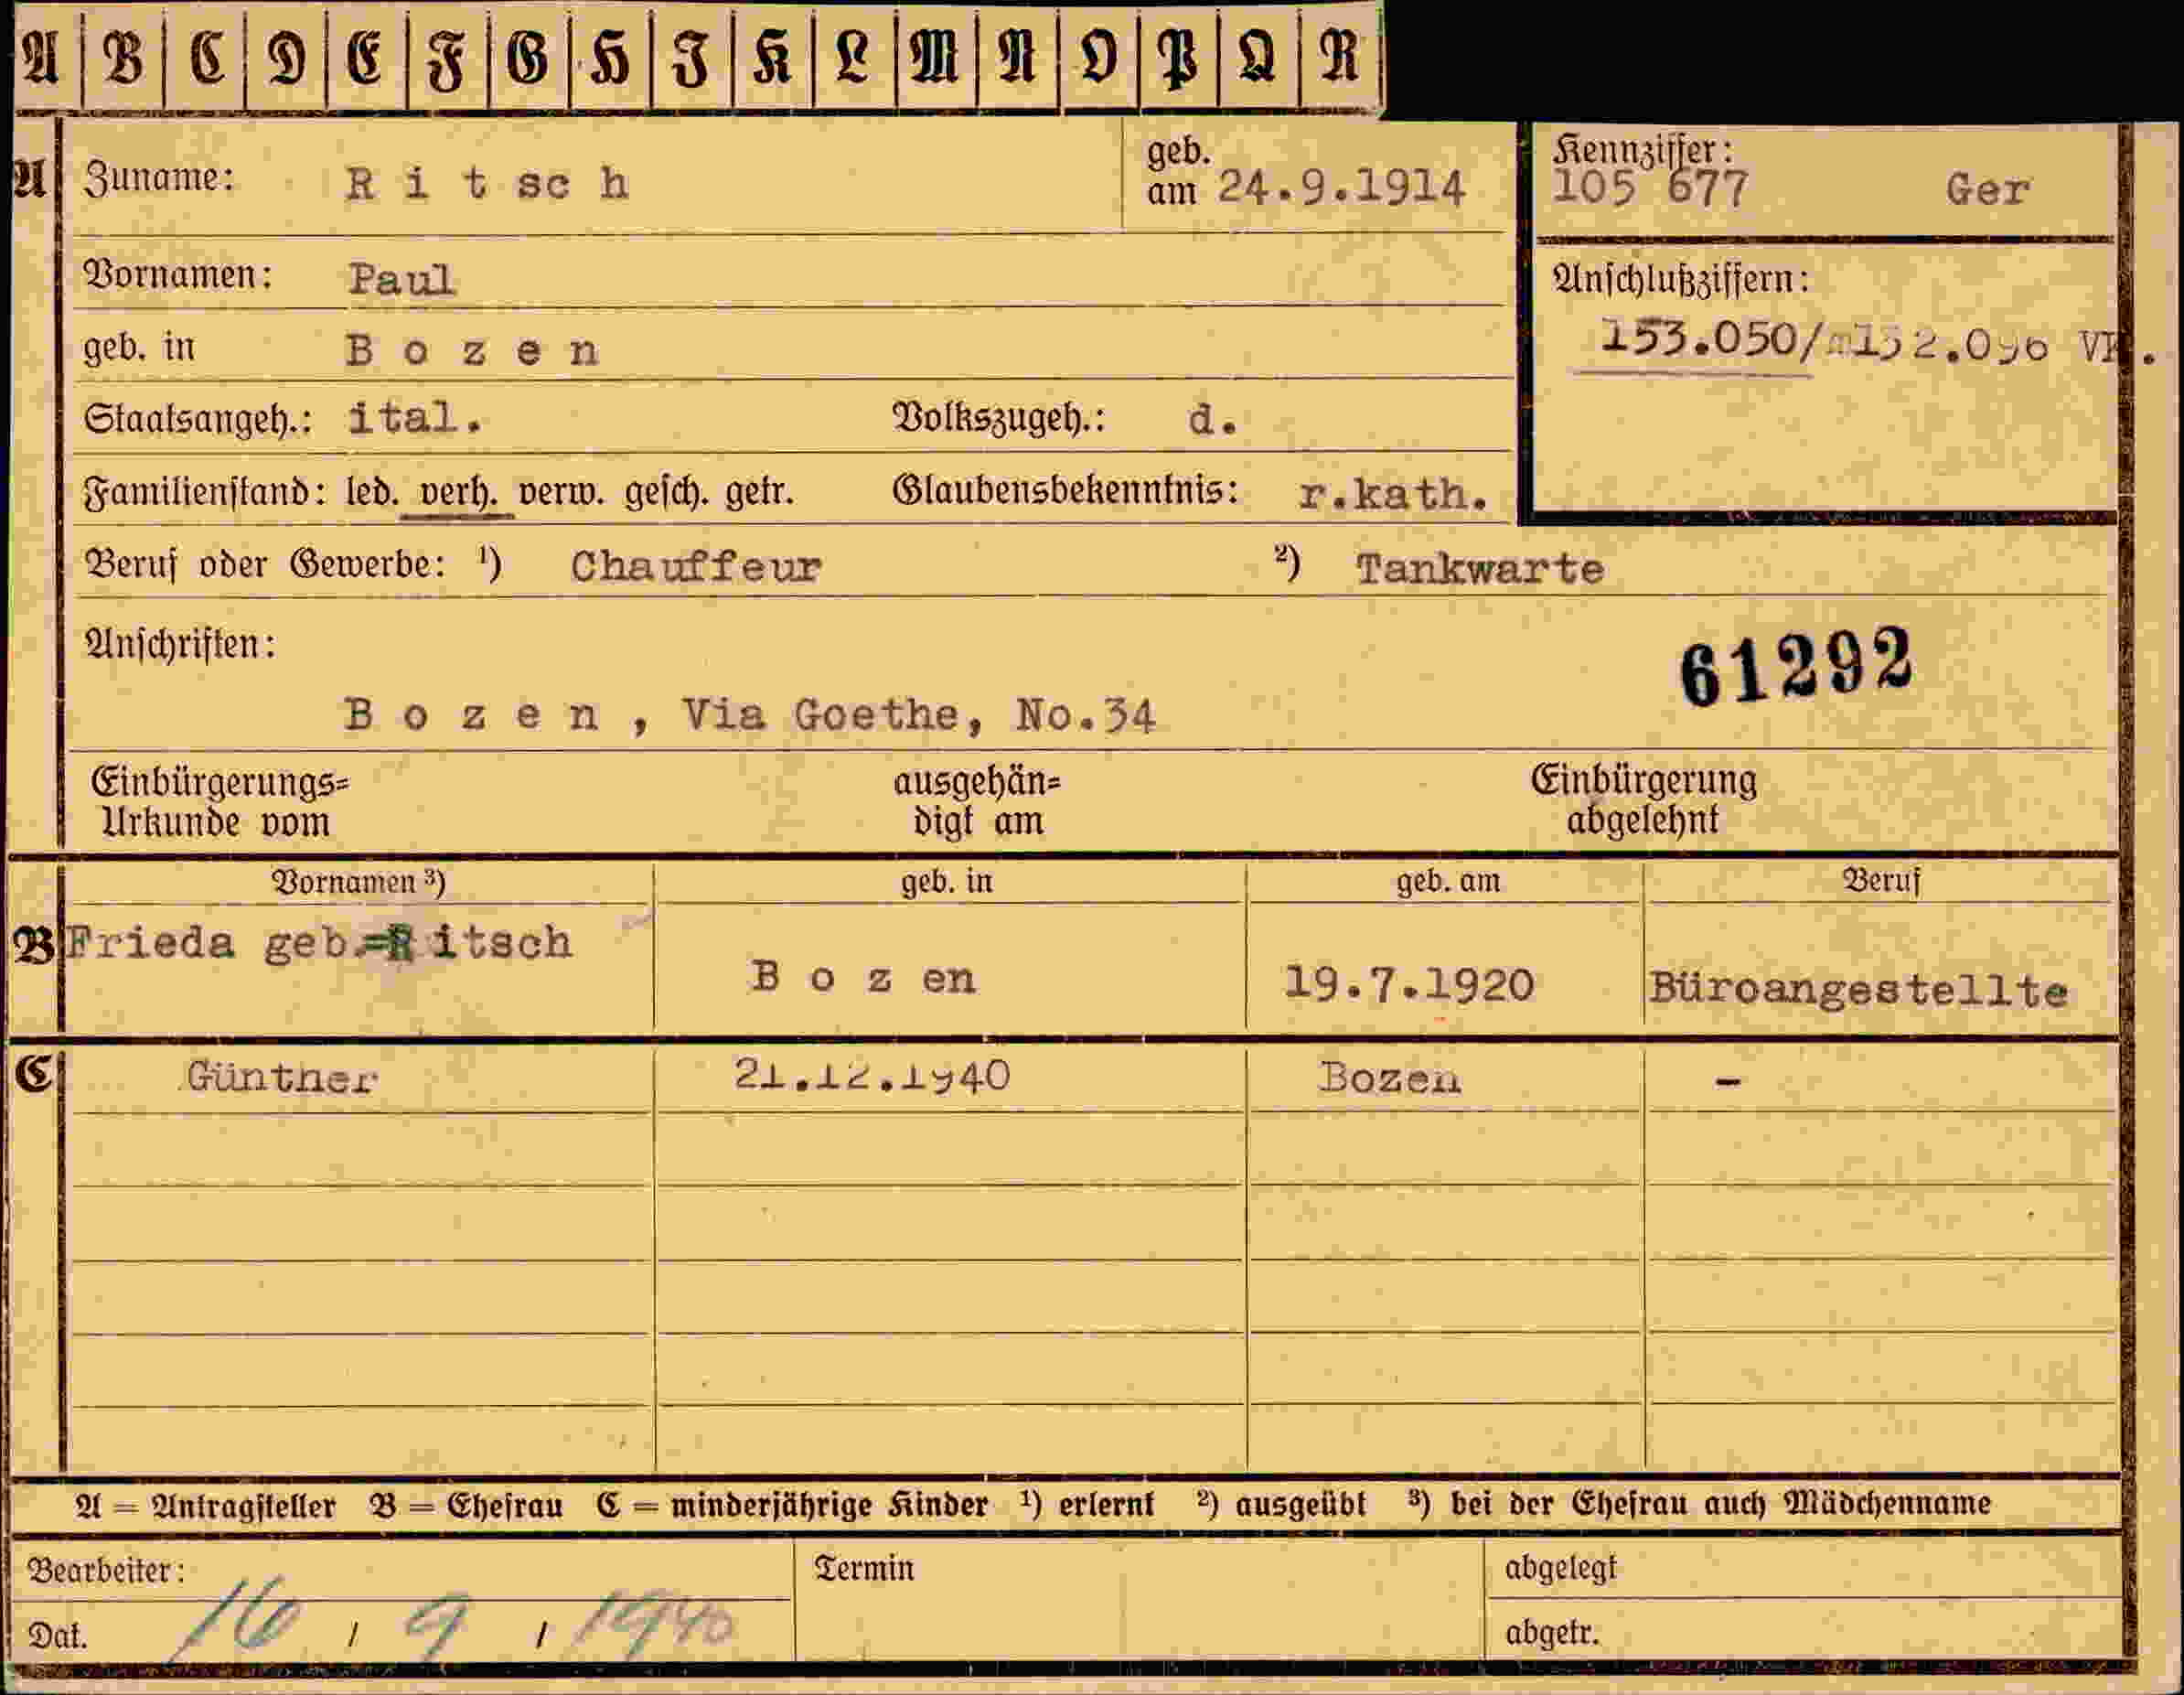 A B C D E F G H I K L M N O P Q R
A Zuname: R i t sch geb. am 24.9.1914 Kennziffer: 105 677 Ger
Vornamen: Paul Anschlußziffern:
geb. in B o z e n 153.050/
Staatsangeh.: ital. Volkszugeh.: d.
Familienstand: led. verh. verw. gesch. getr. Glaubensbekenntnis: r.kath.
Beruf oder Gewerbe: ¹) Chauffeur ²) Tankwarte
Anschriften: 61292
B o z e n , Via Goethe, No.34
Einbürgerungs= ausgehän= Einbürgerung
Urkunde vom digt am abgelehnt
Vornamen ³) geb. in geb. am Beruf
B Frieda geb.=Ritsch B o z en 19.7.1920 Büroangestellte
C Günther 21.12.1940 Bozen -
A = Antragsteller B = Ehefrau C = minderjährige Kinder ¹) erlernt ²) ausgeübt ³) bei der Ehefrau auch Mädchenname
Bearbeiter: Termin abgelegt
Dat. 16 / 9 / 1940 abgetr.